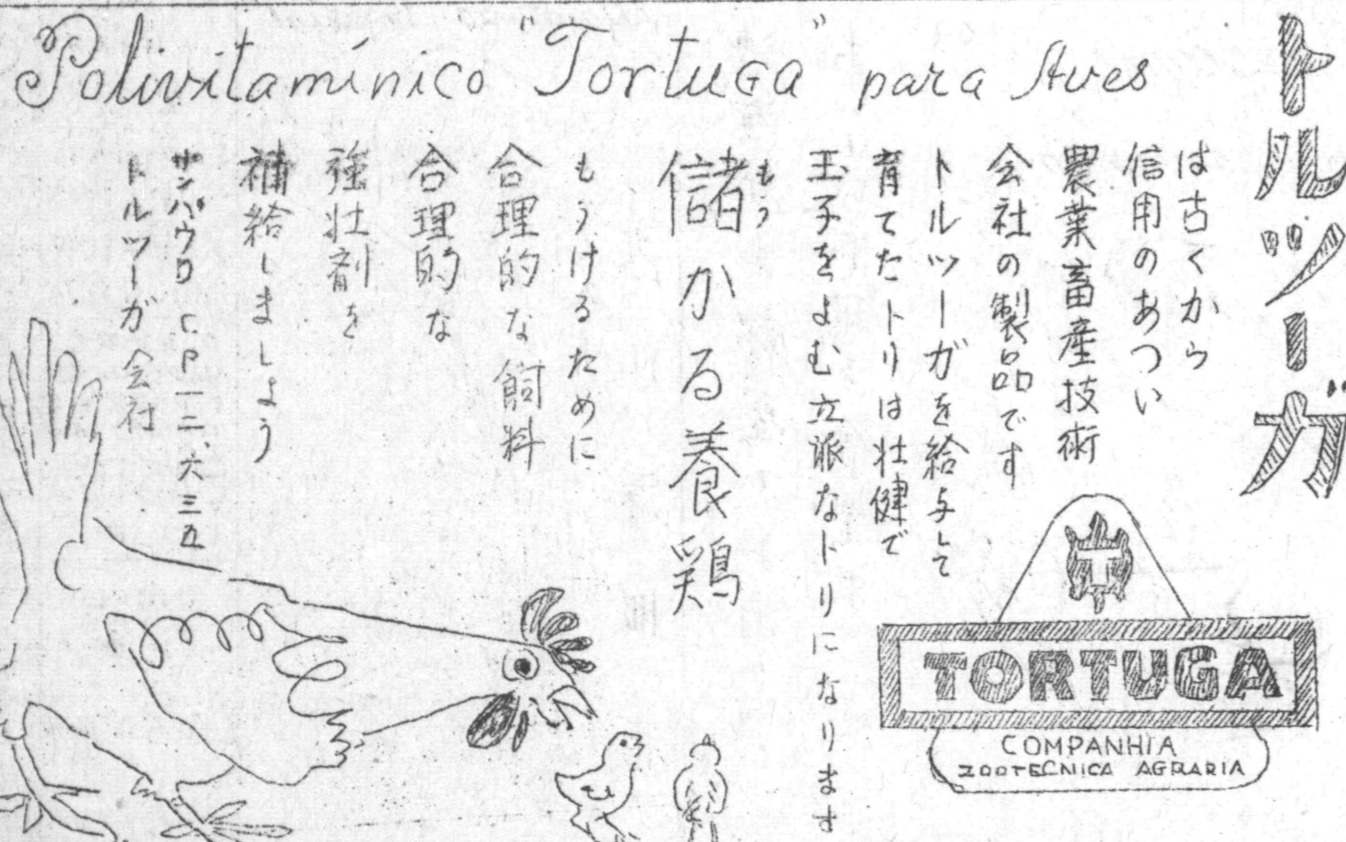 Polivitamínico "Tortuga" para Aves
トルツーガ
は古くから
信用のあつい
農業畜産技術
会社の製品です
トルツーガを給与して
育てたトリは壮健で
玉子をよむ立派なトリになります
もう
儲かる養鶏
もうけるために
合理的な飼料
合理的な
強壮剤を
補給しましょう
サンパウロ C.P 一二、六三五
トルツーガ会社
T
TORTUGA
COMPANHIA
ZOOTECNICA AGRARIA